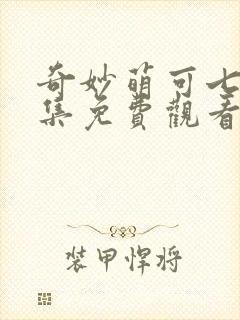 奇妙萌可七
集免費觀看
装甲悍将